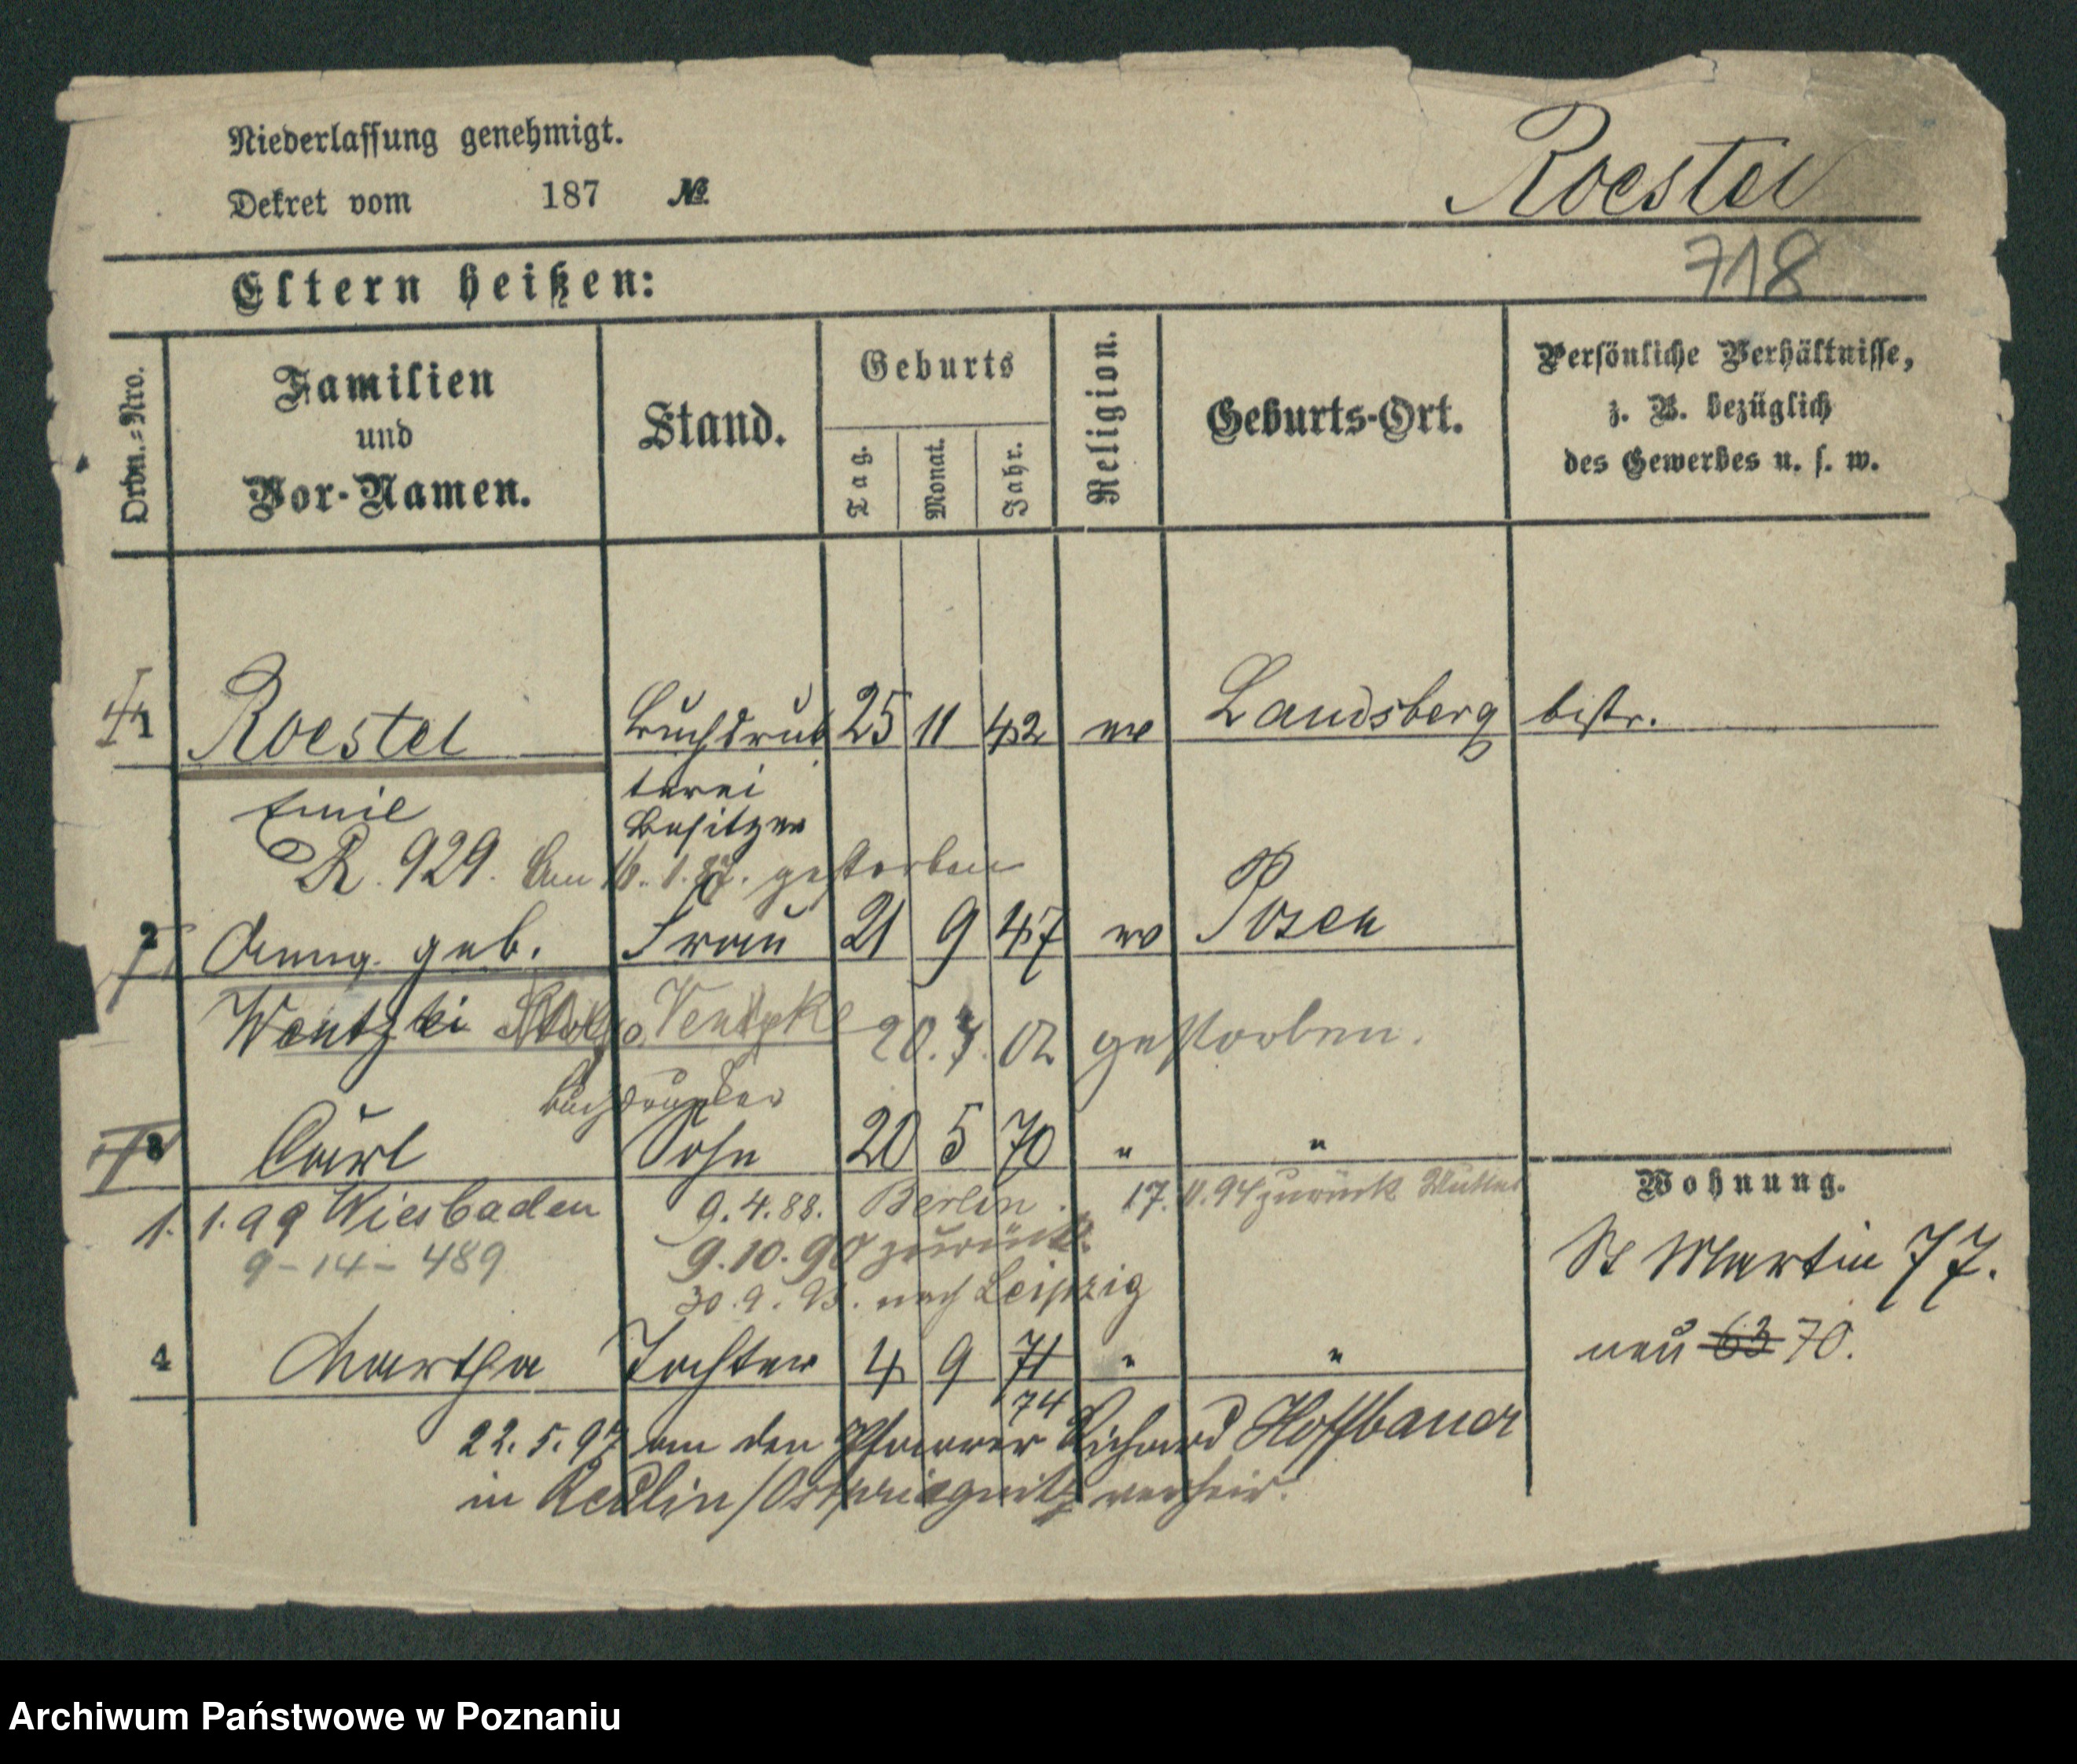 Niederlassung genehmigt.
Roestel
Dekret vom 187 №
718
Eltern heißen:
Ordn.-Nro.
Familien und Vor-Namen.
Stand.
Geburts
Tag.
Monat.
Jahr.
Religion.
Geburts-Ort.
Persönliche Verhältnisse,
z. B. bezüglich
des Gewerbes u. s. w.
1 Roestel Buchdruk 25 11 42 ev Landsberg bistr.
terei
Emil Besitzer
R. 929. Am 16. 1. gestorben
2 Anna geb. Frau 21 9 47 ev Posen
Wentzki Ventzke 20. 7. 02 gestorben.
Buchdrucker
3 Carl Sohn 20 5 70 " "
Wohnung.
1. 1. 99 Wiesbaden 9. 4. 88. Berlin. 17. 11. 94 zurück Mutter
9-14-489 9. 10. 90 zurück.
St Martin 77.
30. 9. 93. nach Leipzig
neu 63 70.
4 Martha Tochter 4 9 71 " "
74
22. 5. 97 an den Pfarrer Richard Hoffbauer
in Redlin/Ostpriegnitz verheir.
Archiwum Państwowe w Poznaniu